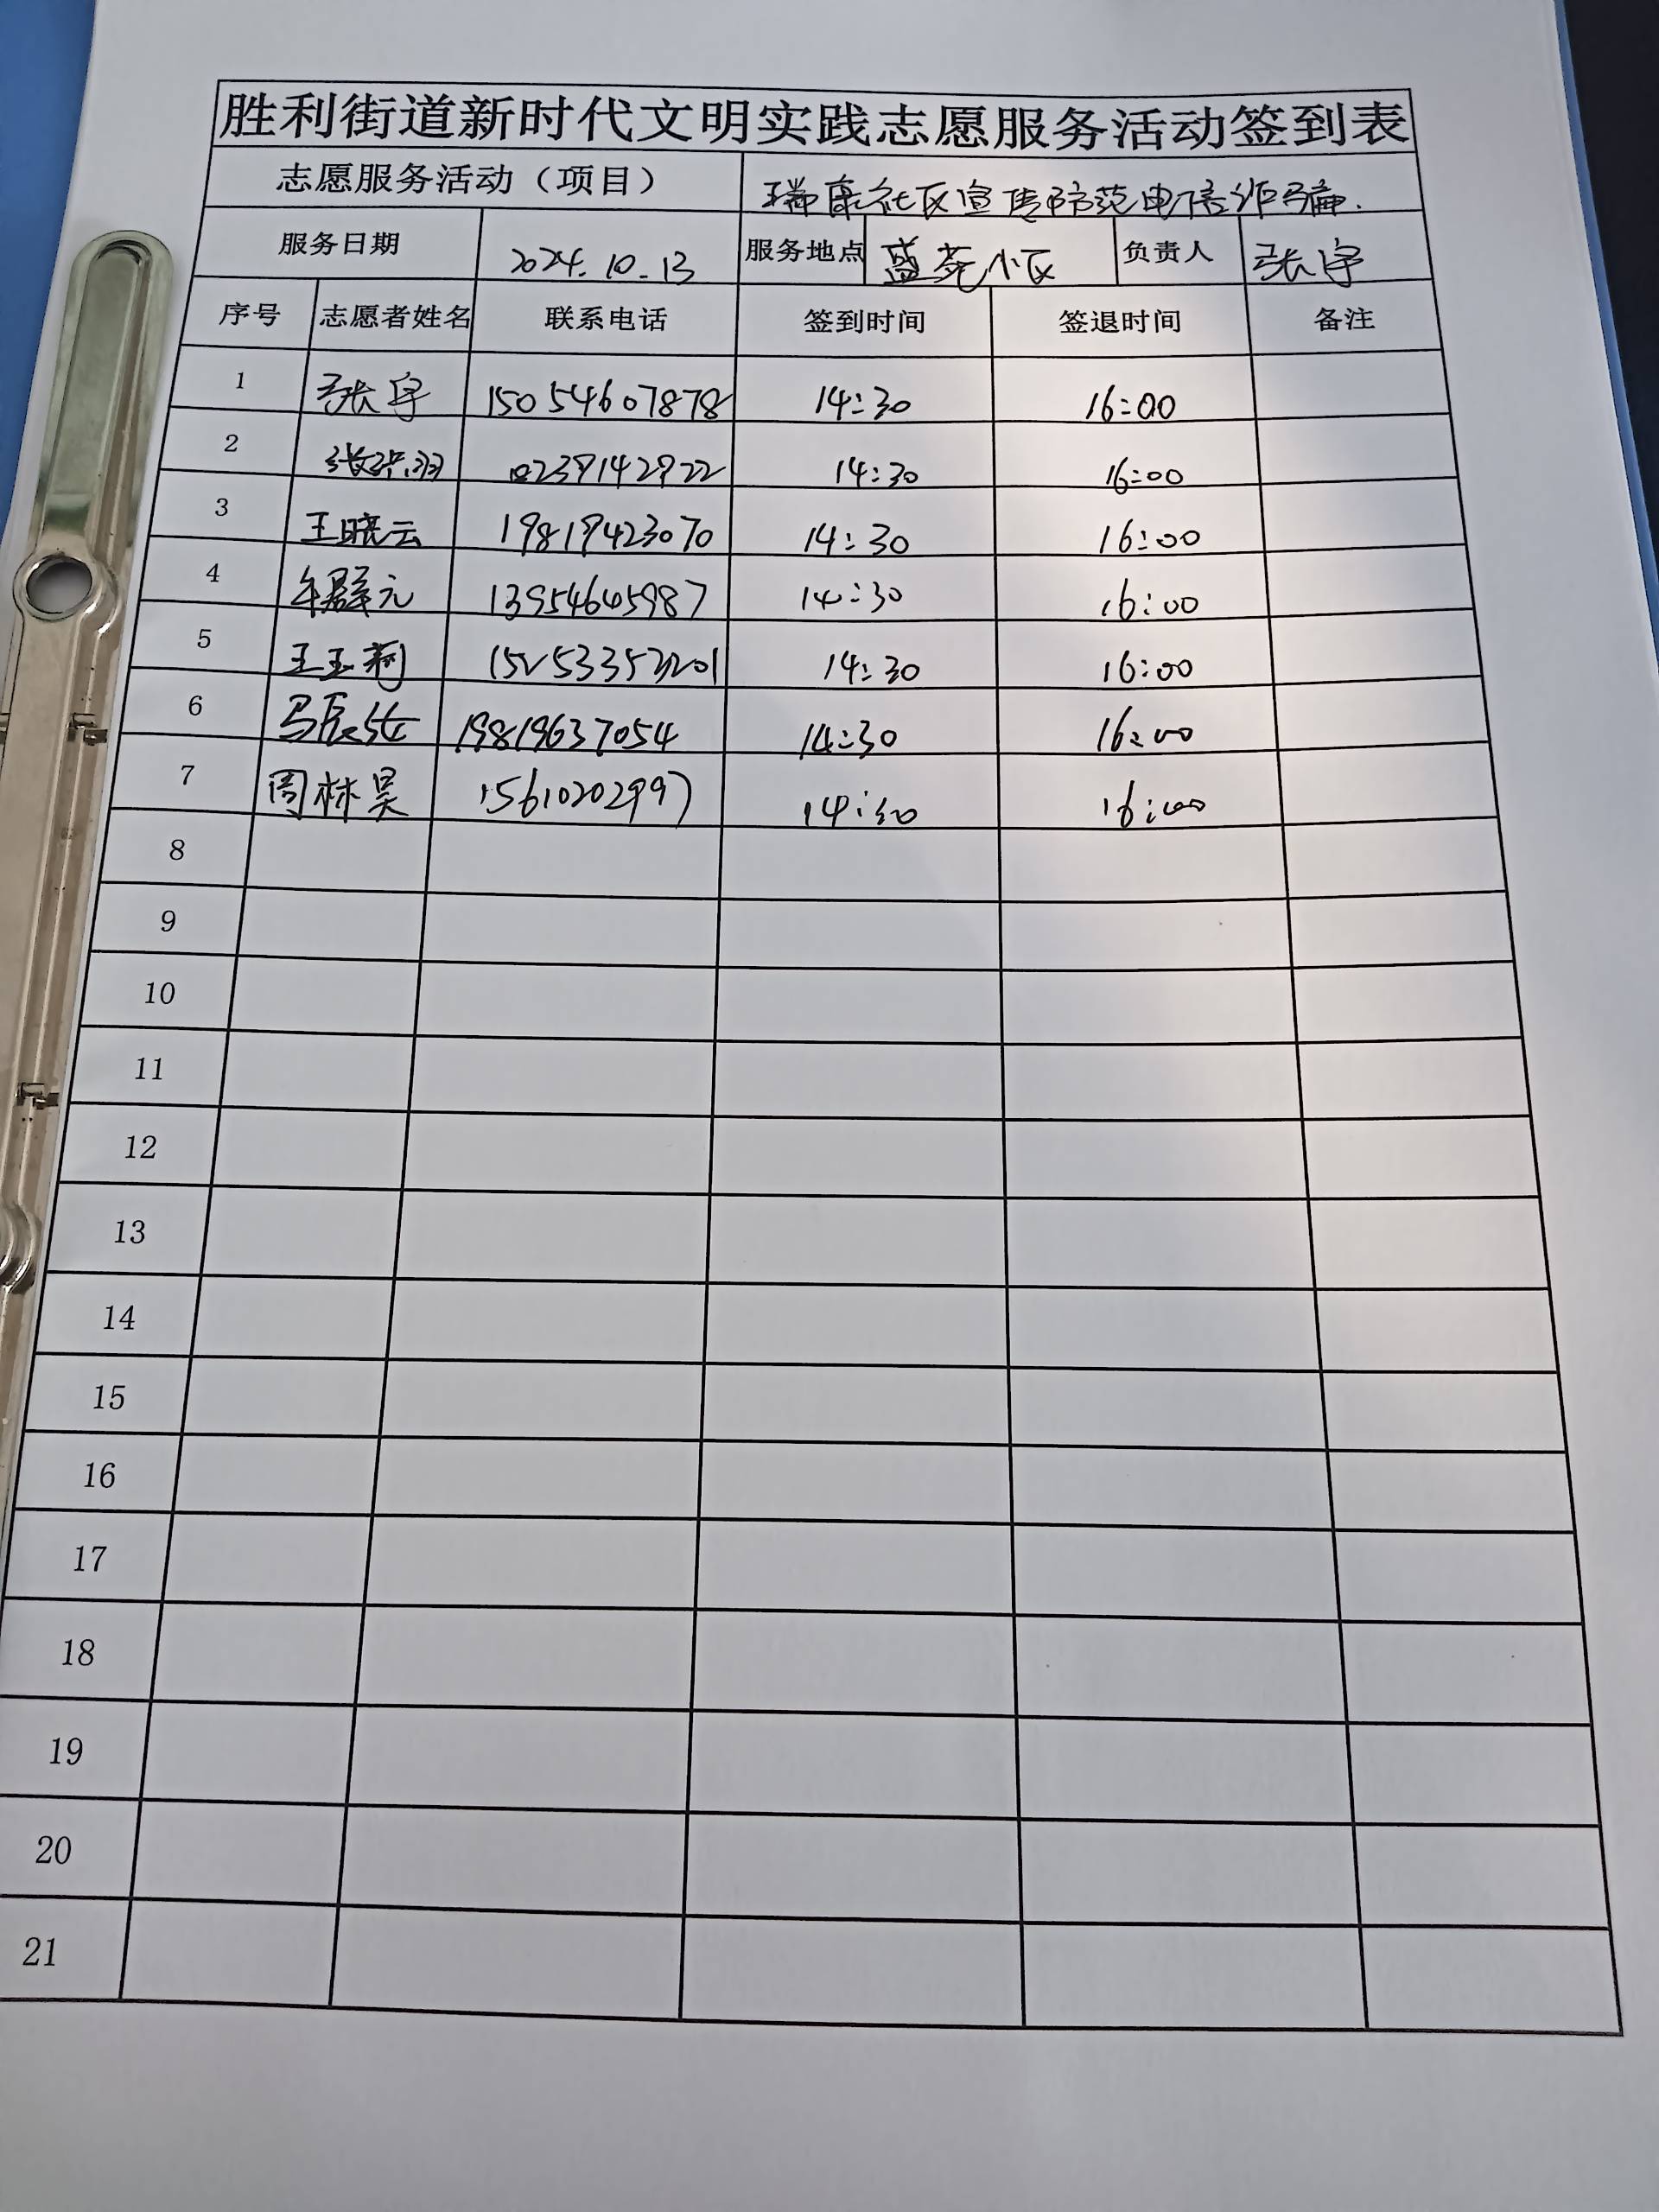 胜利街道新时代文明实践志愿服务活动签到表
志愿服务活动（项目） 瑞康社区宣传防范电信诈骗.
服务日期 2024.10.13 服务地点 盛苑小区 负责人 张宇
序号 志愿者姓名 联系电话 签到时间 签退时间 备注
1 张宇 15054607878 14:30 16:00
2 14:30 16:00
3 王晓云 19819423070 14:30 16:00
4 13954645987 14:30 16:00
5 王玉莉 14:30 16:00
6 19819637054 14:30 16:00
7 周林昊 15610202997 14:30 16:00
8
9
10
11
12
13
14
15
16
17
18
19
20
21